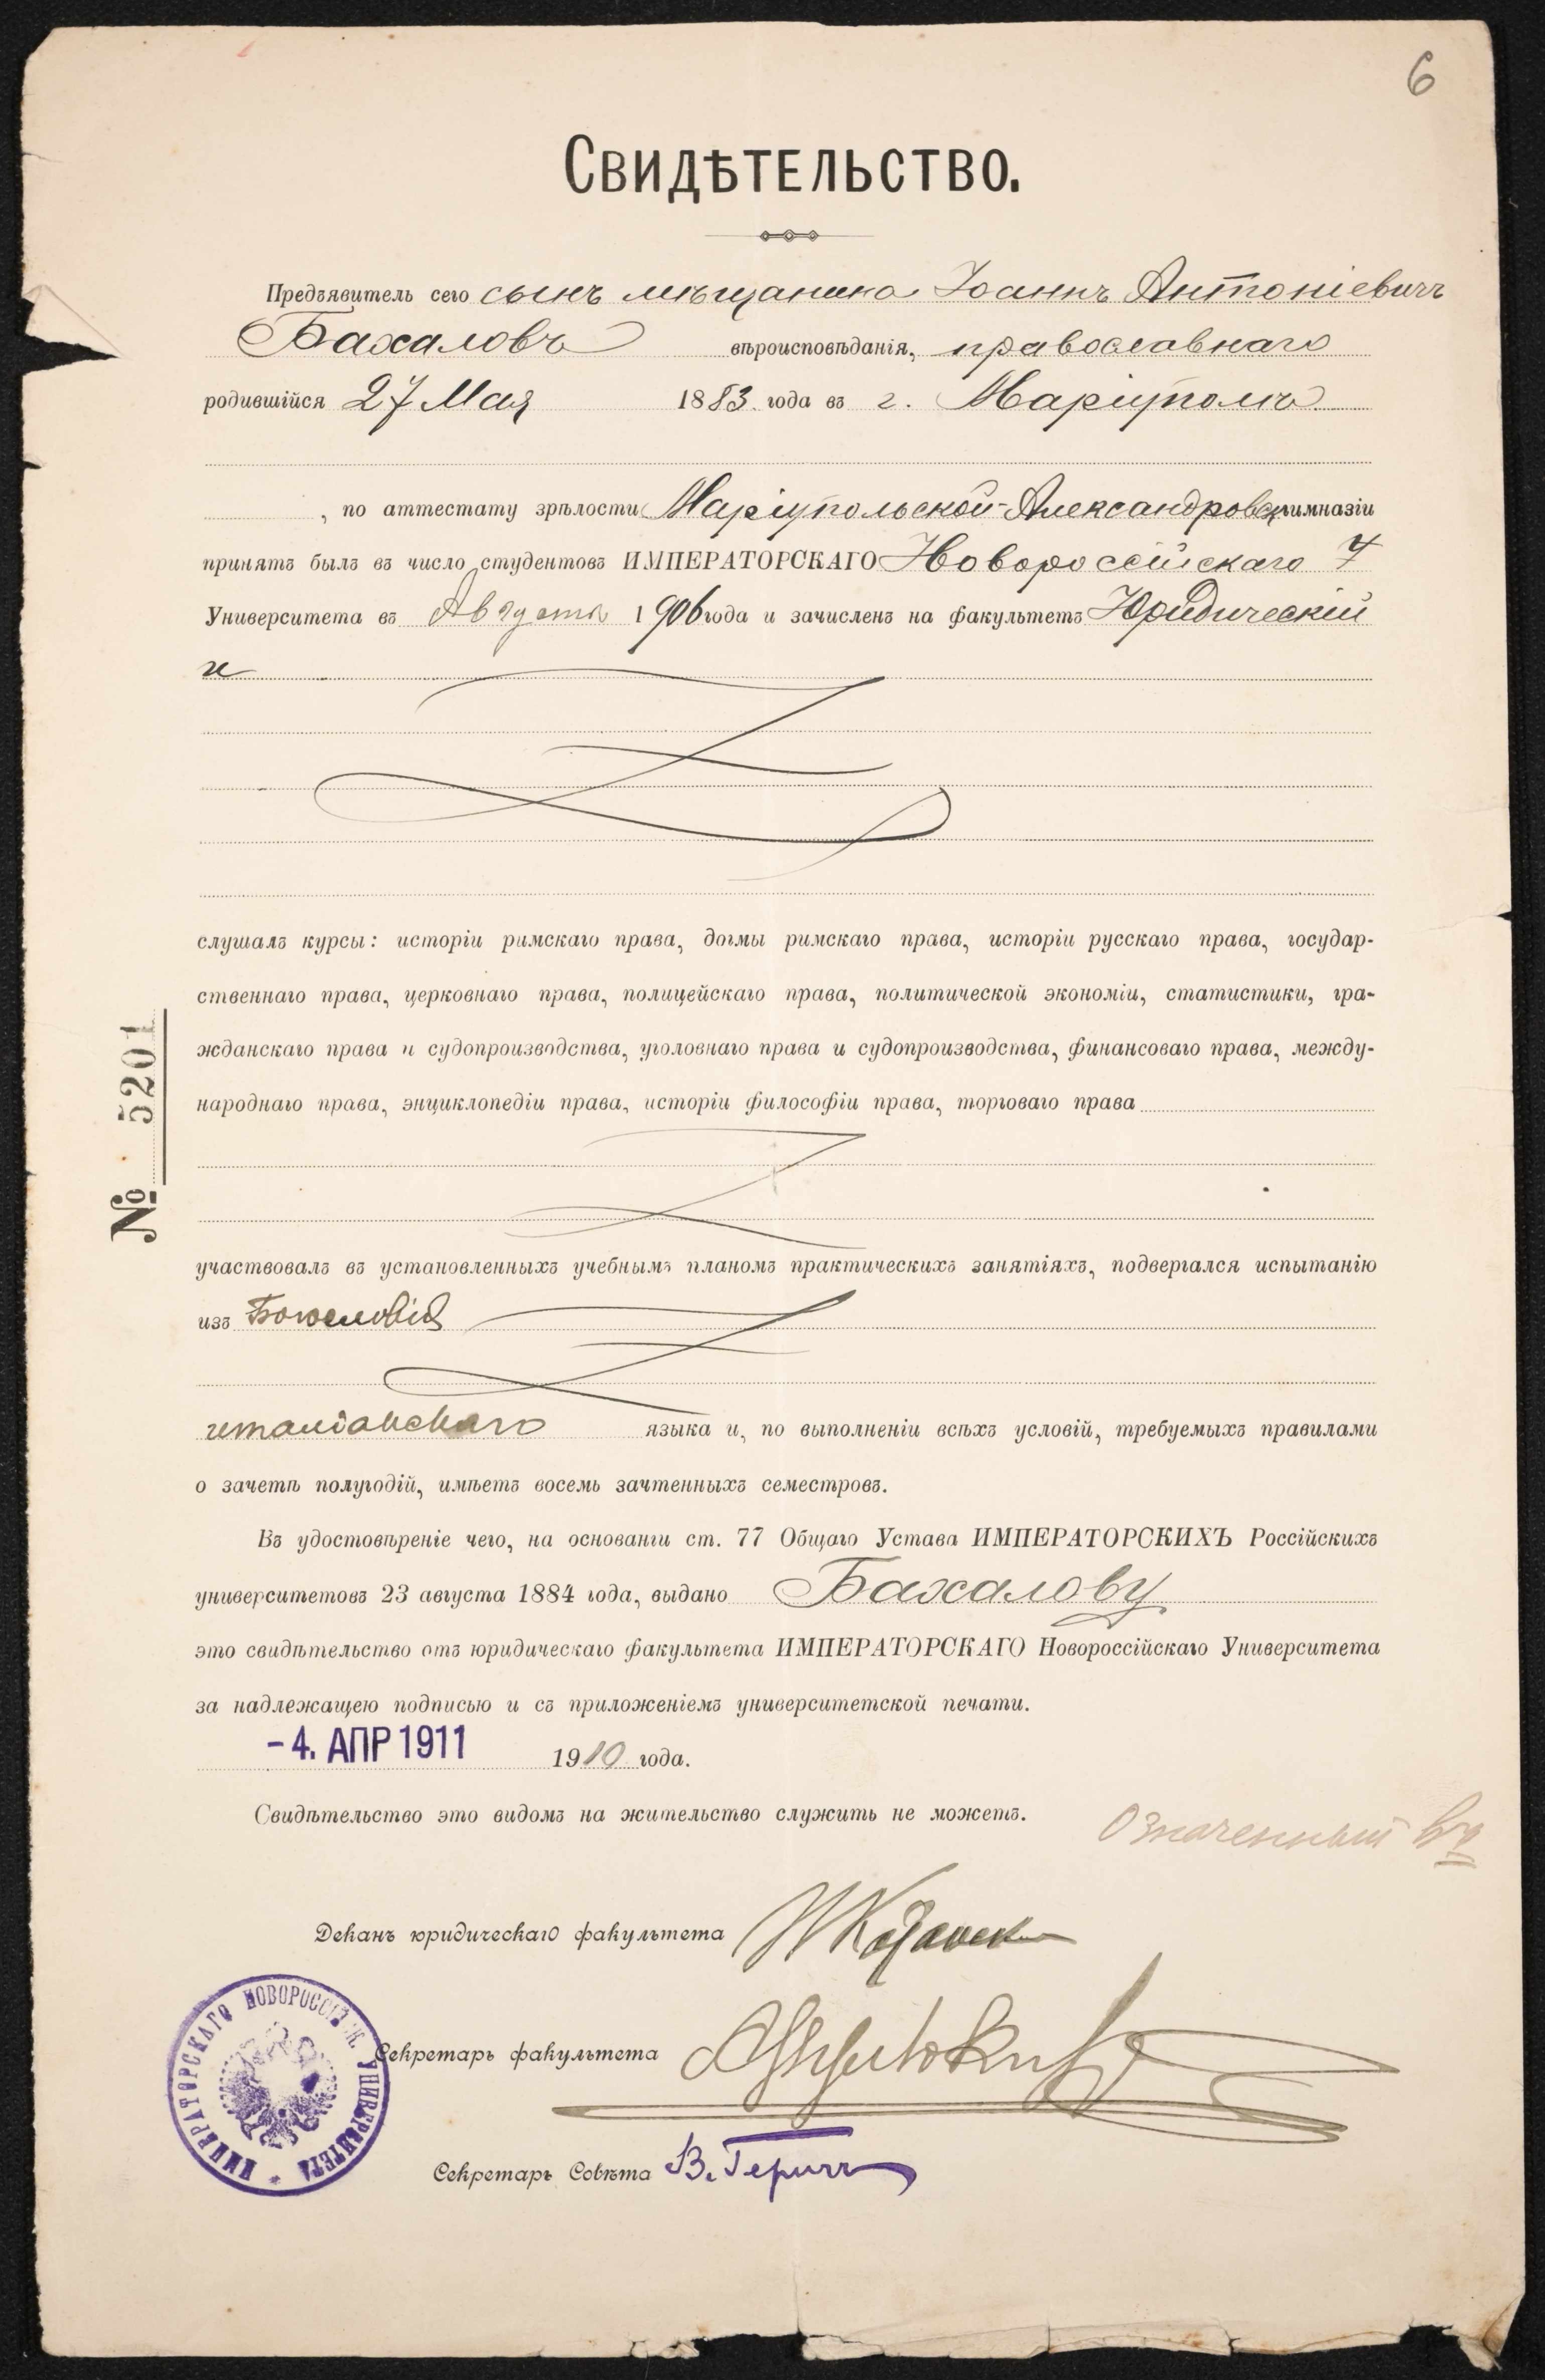 6
Свидѣтельство.
Предъявитель сего сынъ мѣщанина Іоаннъ Антоніевичъ
Бахаловъ вѣроисповѣданія, православнаго
родившійся 27 Мая 1883 года въ г. Маріуполѣ
, по аттестату зрѣлости Маріупольской Александровск гимназіи
принятъ былъ въ число студентовъ ИМПЕРАТОРСКАГО Новороссійскаго
Университета въ Августѣ 1906 года и зачисленъ на факультетъ Юридическій
и
слушалъ курсы: исторіи римскаго права, догмы римскаго права, исторіи русскаго права, государ-
ственнаго права, церковнаго права, полицейскаго права, политической экономіи, статистики, гра-
жданскаго права и судопроизводства, уголовнаго права и судопроизводства, финансоваго права, между-
народнаго права, энциклопедіи права, исторіи философіи права, торговаго права
№ 5201
участвовалъ въ установленныхъ учебнымъ планомъ практическихъ занятіяхъ, подвергался испытанію
изъ Богословія
италіанскаго языка и, по выполненіи всѣхъ условій, требуемыхъ правилами
о зачетѣ полугодій, имѣетъ восемь зачтенныхъ семестровъ.
Въ удостовѣреніе чего, на основаніи ст. 77 Общаго Устава ИМПЕРАТОРСКИХЪ Россійскихъ
университетовъ 23 августа 1884 года, выдано Бахалову
это свидѣтельство отъ юридическаго факультета ИМПЕРАТОРСКАГО Новороссійскаго Университета
за надлежащею подписью и съ приложеніемъ университетской печати.
-4. АПР 1911 1910 года.
Свидѣтельство это видомъ на жительство служить не можетъ.
Означенный
Деканъ юридическаго факультета
ИМПЕРАТОРСКАГО НОВОРОССІЙСК. УНИВЕРСИТЕТА
Секретарь факультета
Секретарь Совѣта В. Геричъ